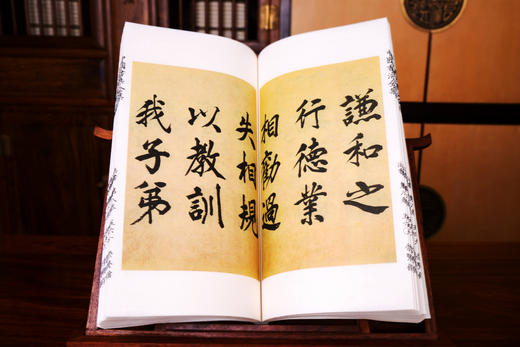 謙和之
行德業
相勸過
失相規
以教訓
我子弟